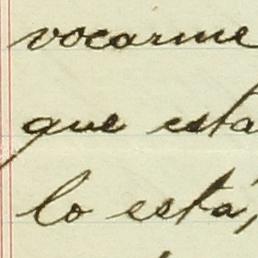 vocarme
que esta
lo está,